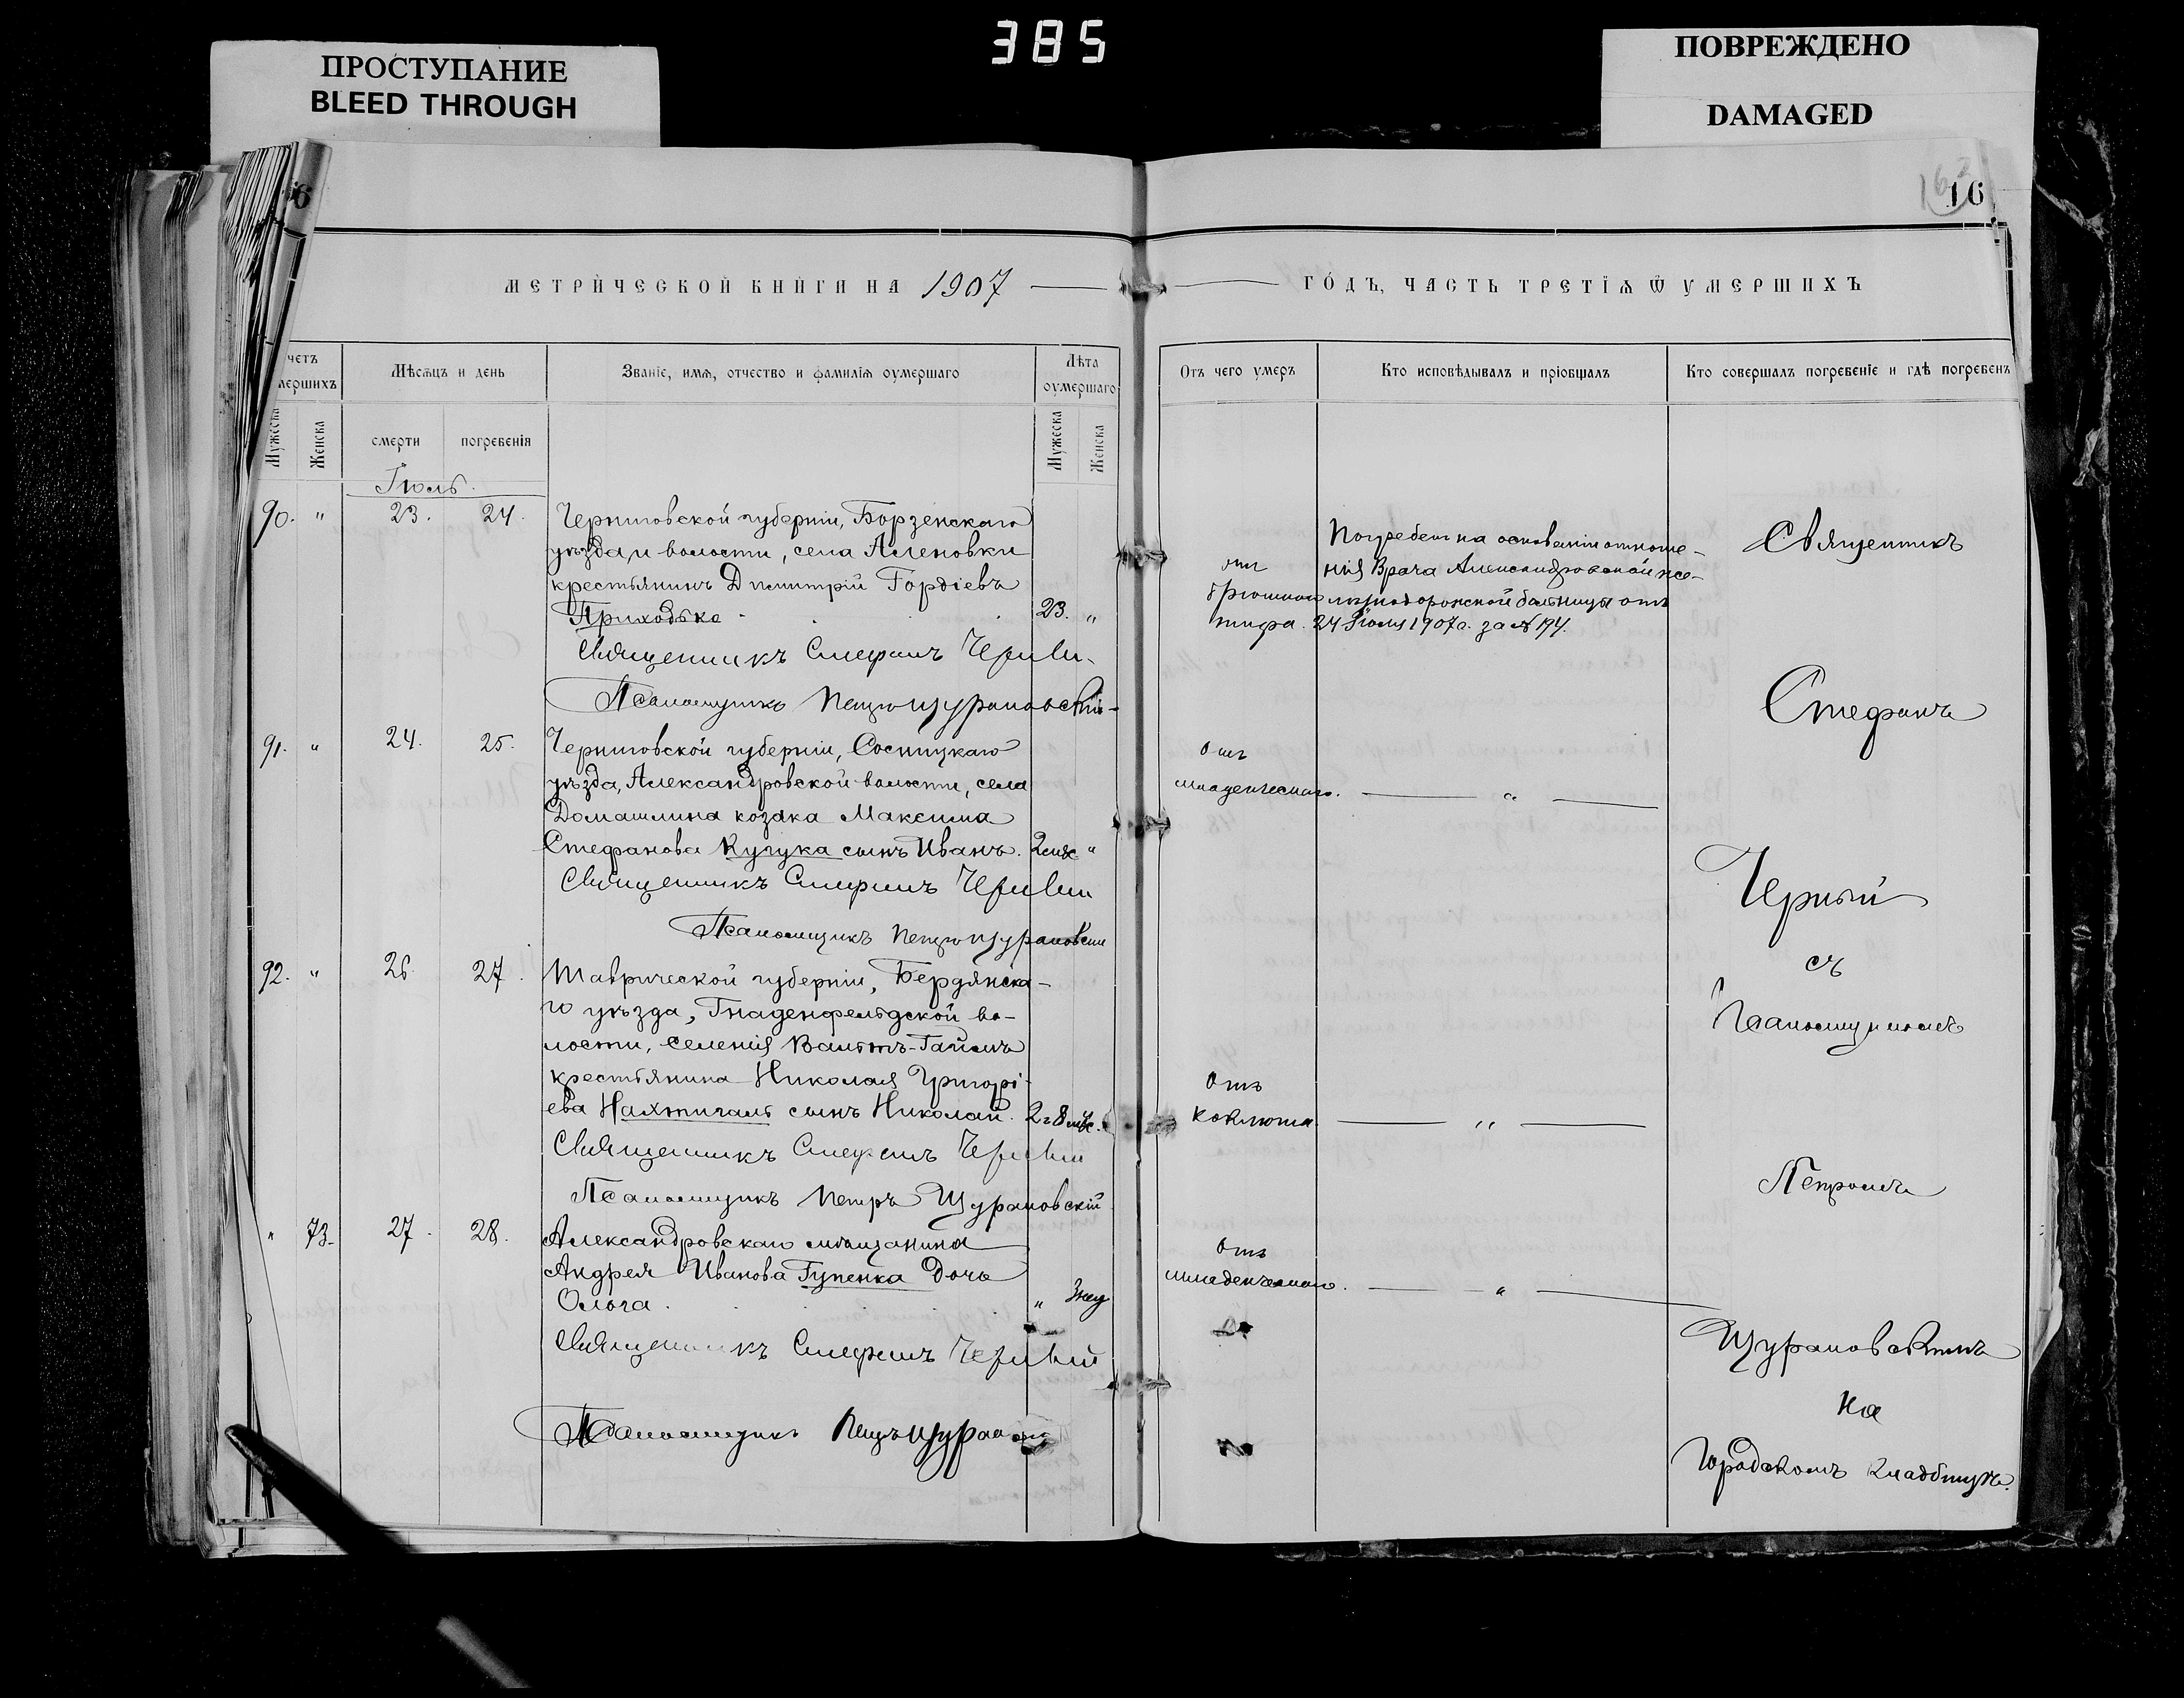 385
ПРОСТУПАНИЕ
BLEED THROUGH
ПОВРЕЖДЕНО
DAMAGED
16
МЕТРИЧЕСКОЙ КНИГИ НА 1907
ГОДЪ, ЧАСТЬ ТРЕТІЯ Ѿ УМЕРШИХЪ
четъ
мершихъ
Мужеска
Женска
Мѣсяцъ и день
смерти
погребенія
Званіе, имя, отчество и фамилія оумершаго
Лѣта
оумершаго
Мужеска
Женска
Отъ чего умеръ
Кто исповѣдывалъ и пріобщалъ
Кто совершалъ погребеніе и гдѣ погребенъ
Іюль.
90. " 23. 24.
Черниговской губерніи, Борзенскаго
уѣзда, и волости, села Аленовки
крестьянинъ Димитрій Гордіевъ
Приходько 23. "
отъ
брюшного
тифа.
Погребенъ на основаніи отноше-
нія Врача Александровской же-
лѣзнодорожной больницы отъ
24 Іюля 1907 г. за № 194.
Священникъ Стефанъ Черный
Псаломщикъ Петръ Щурановскій
91. " 24. 25.
Черниговской губерніи, Сосницкаго
уѣзда, Александровской волости, села
Домашлина козака Максима
Стефанова Кугука сынъ Иванъ. 2 мѣс "
отъ
младенческаго. "
Священникъ Стефанъ Черный
Псаломщикъ Петръ Щурановскій
92. " 26. 27.
Таврической губерніи, Бердянска-
го уѣзда, Гнаденфельдской во-
лости, селенія Вальтъ-Гаймъ
крестьянина Николая Григорі-
ева Нахтигаль сынъ Николай. 2 г 8 мѣс.
Отъ
коклюша "
Священникъ Стефанъ Черный
Псаломщикъ Петръ Щурановскій
" 73. 27. 28.
Александровскаго мѣщанина
Андрея Иванова Гупенка дочь
Ольга. " 3 нед
Отъ
младенческаго. "
Священникъ Стефанъ Черный
Псаломщикъ Петръ Щурановскій
Священникъ
Стефанъ
Черный
съ
Псаломщикомъ
Петромъ
Щурановскимъ
на
Городскомъ кладбищѣ.